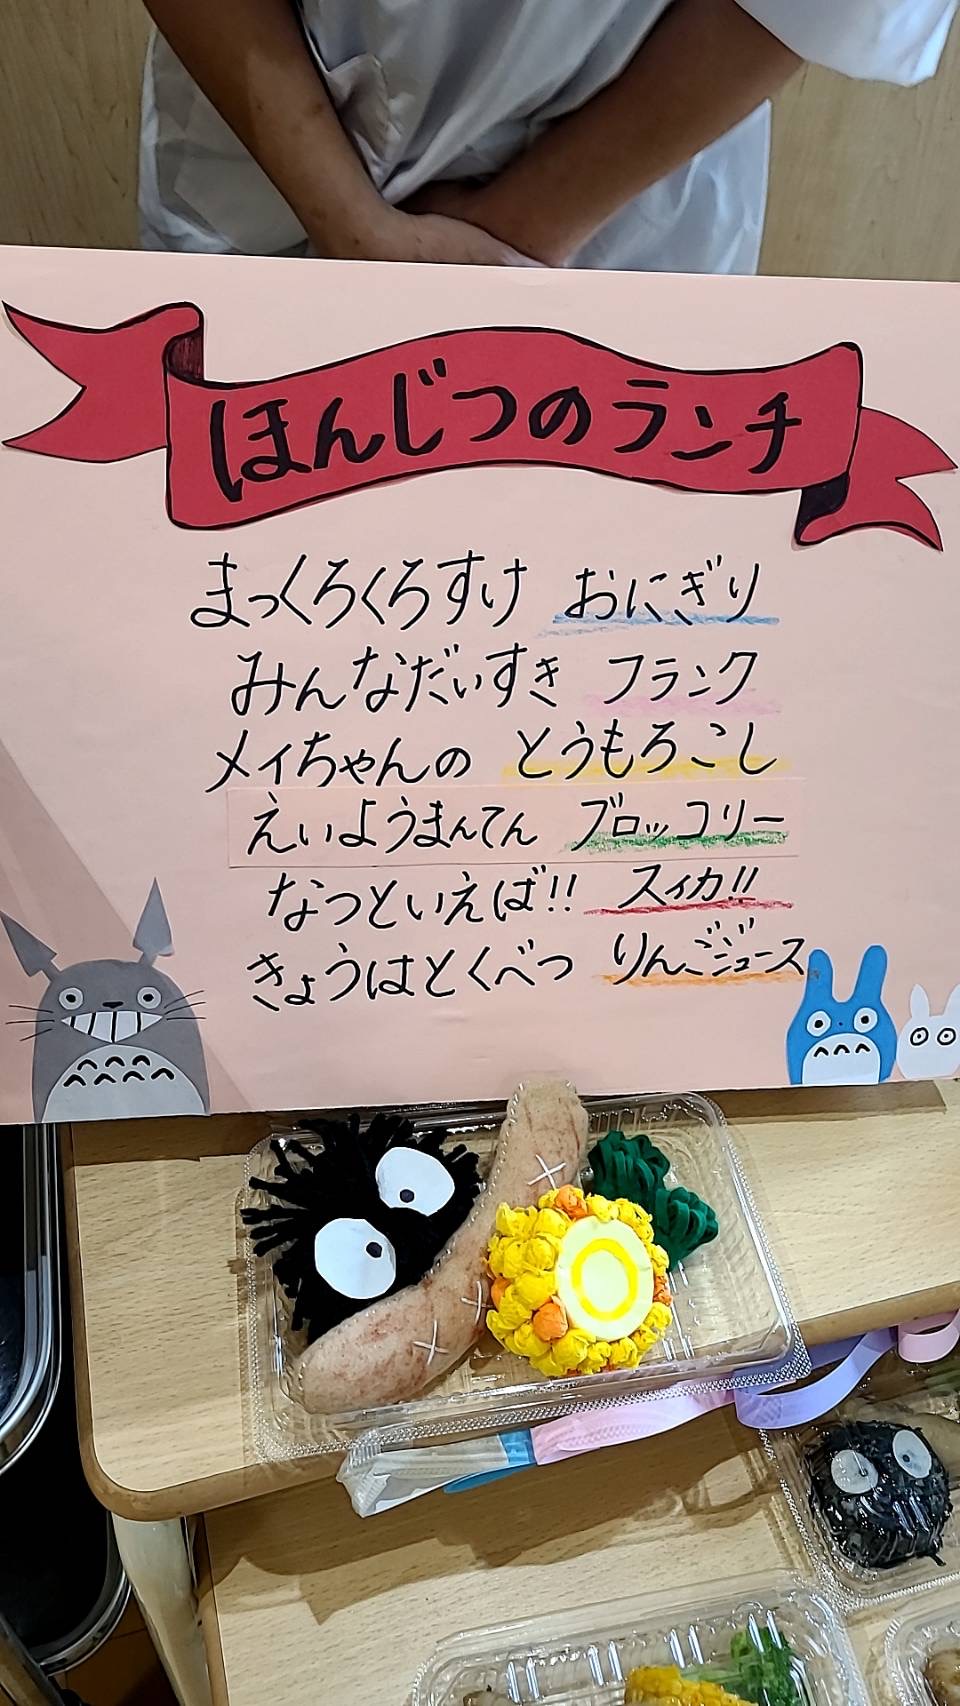 ほんじつのランチ
まっくろくろすけ おにぎり
みんなだいすき フランク
メイちゃんの とうもろこし
えいようまんてん ブロッコリー
なつといえば!! スイカ!!
きょうはとくべつ りんごジュース